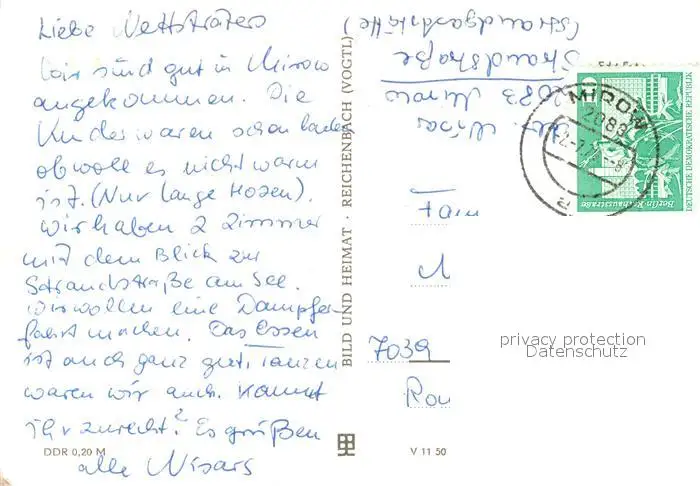 Liebe Nettsträters
Wir sind gut in Mirow
angekommen. Die
Kinder waren schon baden
obwohl es nicht warm
ist. (Nur lange Hosen).
Wir haben 2 Zimmer
mit dem Blick zur
Strandstraße am See.
Wir wollen eine Dampfer
fahrt machen. Das Essen
ist auch ganz gut. Tanzen
waren wir auch. Kommt
ihr zurecht? Es grüßen
alle Nisars
DDR 0,20 M
BILD UND HEIMAT · REICHENBACH (VOGTL)
V 11 50
(Strandgaststätte)
Strandstraße
2083 Mirow
Nisar
Fam
7039
MIROW
2083
a
Berlin-Rathausstraße
DEUTSCHE DEMOKRATISCHE REPUBLIK
privacy protection
Datenschutz